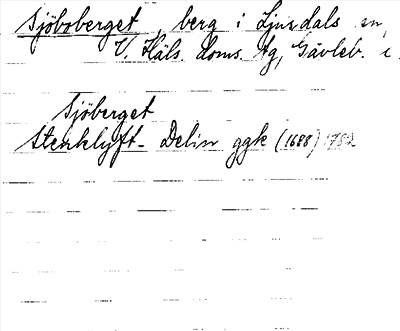 Sjöboberget, berg i Ljusdals sn,
V Häls. doms. tg, Gävleb. l.
Sjöberget
Stenklyft- Delin ggk (1688) 1782